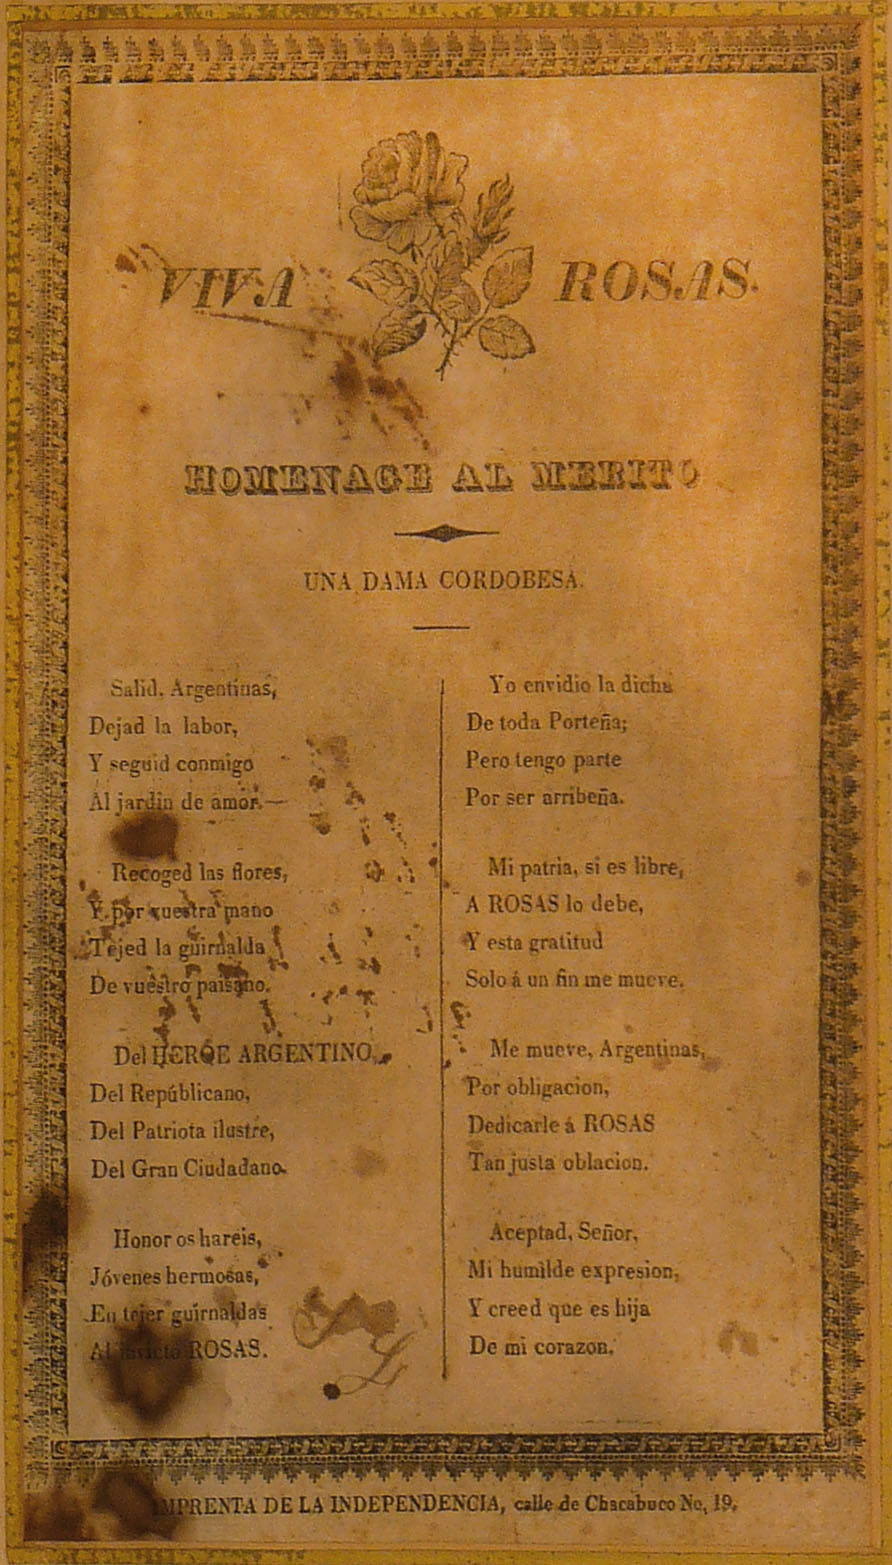 VIVA ROSAS.
HOMENAGE AL MERITO
UNA DAMA CORDOBESA.
Salid, Argentinas,
Dejad la labor,
Y seguid conmigo
Al jardin de amor.—
Recoged las flores,
Y por vuestra mano
Tejed la guirnalda
De vuestro paisano.
Del HEROE ARGENTINO,
Del Repúblicano,
Del Patriota ilustre,
Del Gran Ciudadano.
Honor os hareis,
Jóvenes hermosas,
En tejer guirnaldas
Al invicto ROSAS.
Yo envidio la dicha
De toda Porteña;
Pero tengo parte
Por ser arribeña.
Mi patria, si es libre,
A ROSAS lo debe,
Y esta gratitud
Solo á un fin me mueve.
Me mueve, Argentinas,
Por obligacion,
Dedicarle á ROSAS
Tan justa oblacion.
Aceptad, Señor,
Mi humilde expresion,
Y creed que es hija
De mi corazon.
IMPRENTA DE LA INDEPENDENCIA, calle de Chacabuco No, 19.